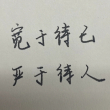 宽于待己
严于待人